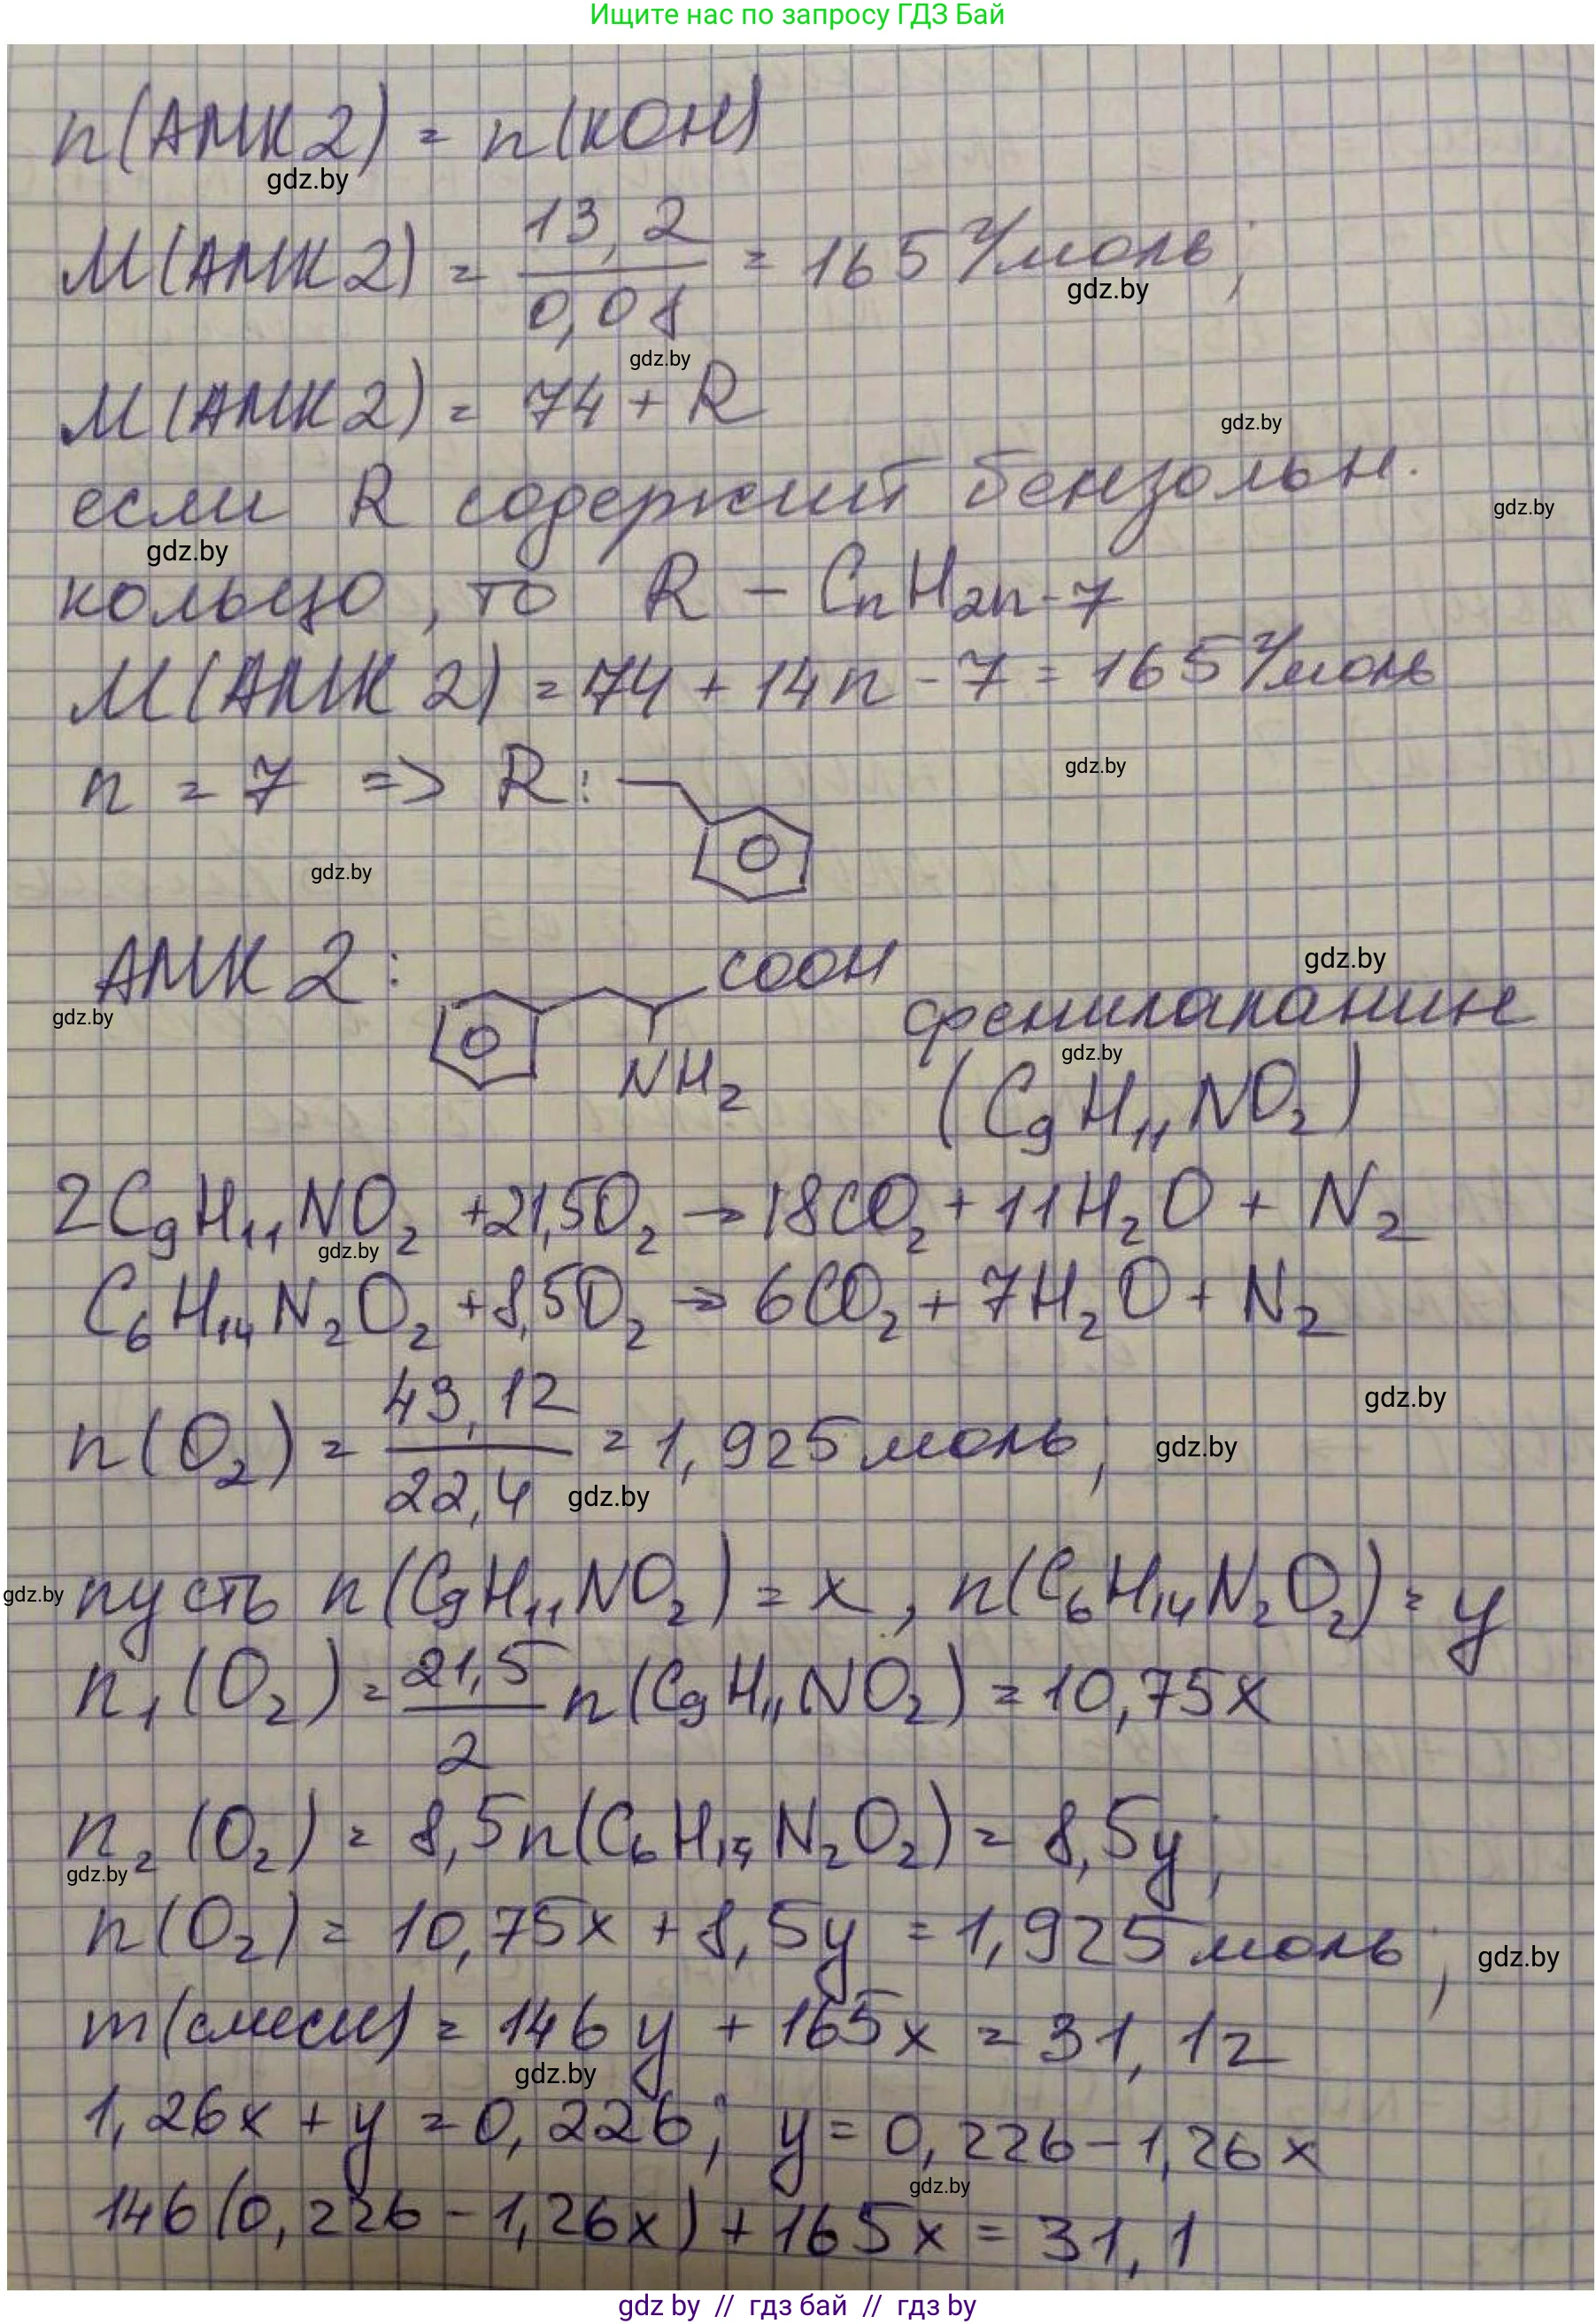 Ищите нас по запросу ГДЗ Бай
n(АМК 2) = n(KOH)
gdz.by
M(АМК 2) = 13,2 / 0,08 = 165 г/моль;
gdz.by
gdz.by
M(АМК 2) = 74 + R
gdz.by
если R содержит бензольн.
gdz.by
gdz.by
кольцо, то R – CnH2n-7
M(АМК 2) = 74 + 14n - 7 = 165 г/моль
n = 7 => R:
gdz.by
gdz.by
АМК 2: COOH
gdz.by
NH2
фенилаланин
gdz.by
gdz.by
(C9H11NO2)
2C9H11NO2 + 21,5O2 → 18CO2 + 11H2O + N2
gdz.by
C6H14N2O2 + 8,5O2 → 6CO2 + 7H2O + N2
gdz.by
n(O2) = 43,12 / 22,4 = 1,925 моль;
gdz.by
gdz.by
gdz.by
пусть n(C9H11NO2) = x, n(C6H14N2O2) = y
n1(O2) = 21,5 / 2 n(C9H11NO2) = 10,75x
n2(O2) = 8,5n(C6H14N2O2) = 8,5y;
gdz.by
n(O2) = 10,75x + 8,5y = 1,925 моль;
gdz.by
m(смеси) = 146y + 165x = 31,12
gdz.by
1,26x + y = 0,226; y = 0,226 - 1,26x
gdz.by
146(0,226 - 1,26x) + 165x = 31,1
gdz by // гдз бай // гдз by